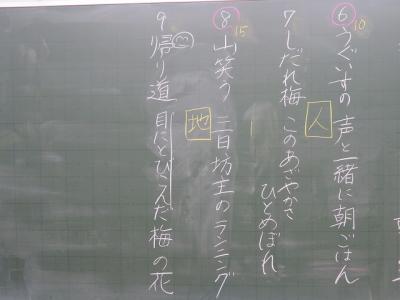 ⑥ うぐいすの 声と一緒に 朝ごはん
10
人
7 しだれ梅 このあざやかさ
ひとめぼれ
⑧ 山笑う 三日坊主のランニング
15
地
9 帰り道 目にとびこんだ 梅の花